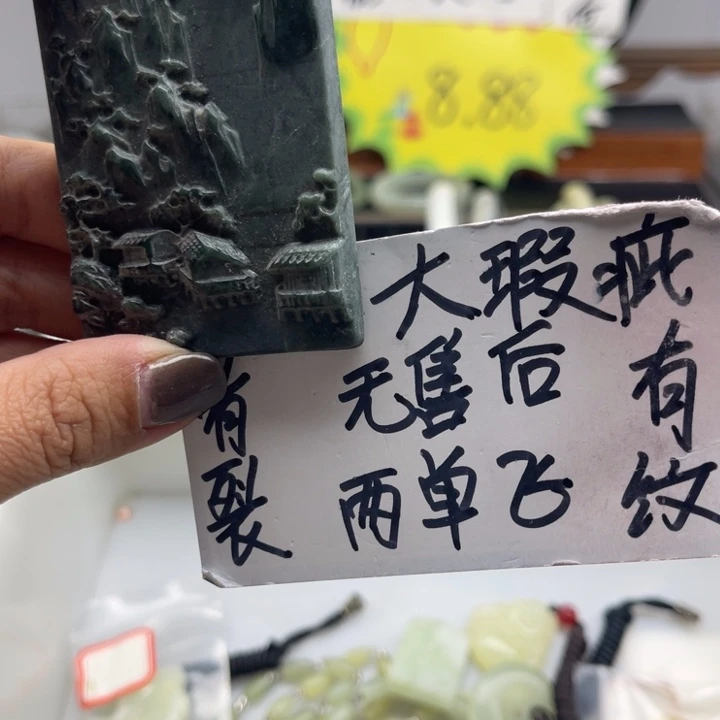 8.88
大瑕疵
有 无售后 有
裂 两单飞 纹